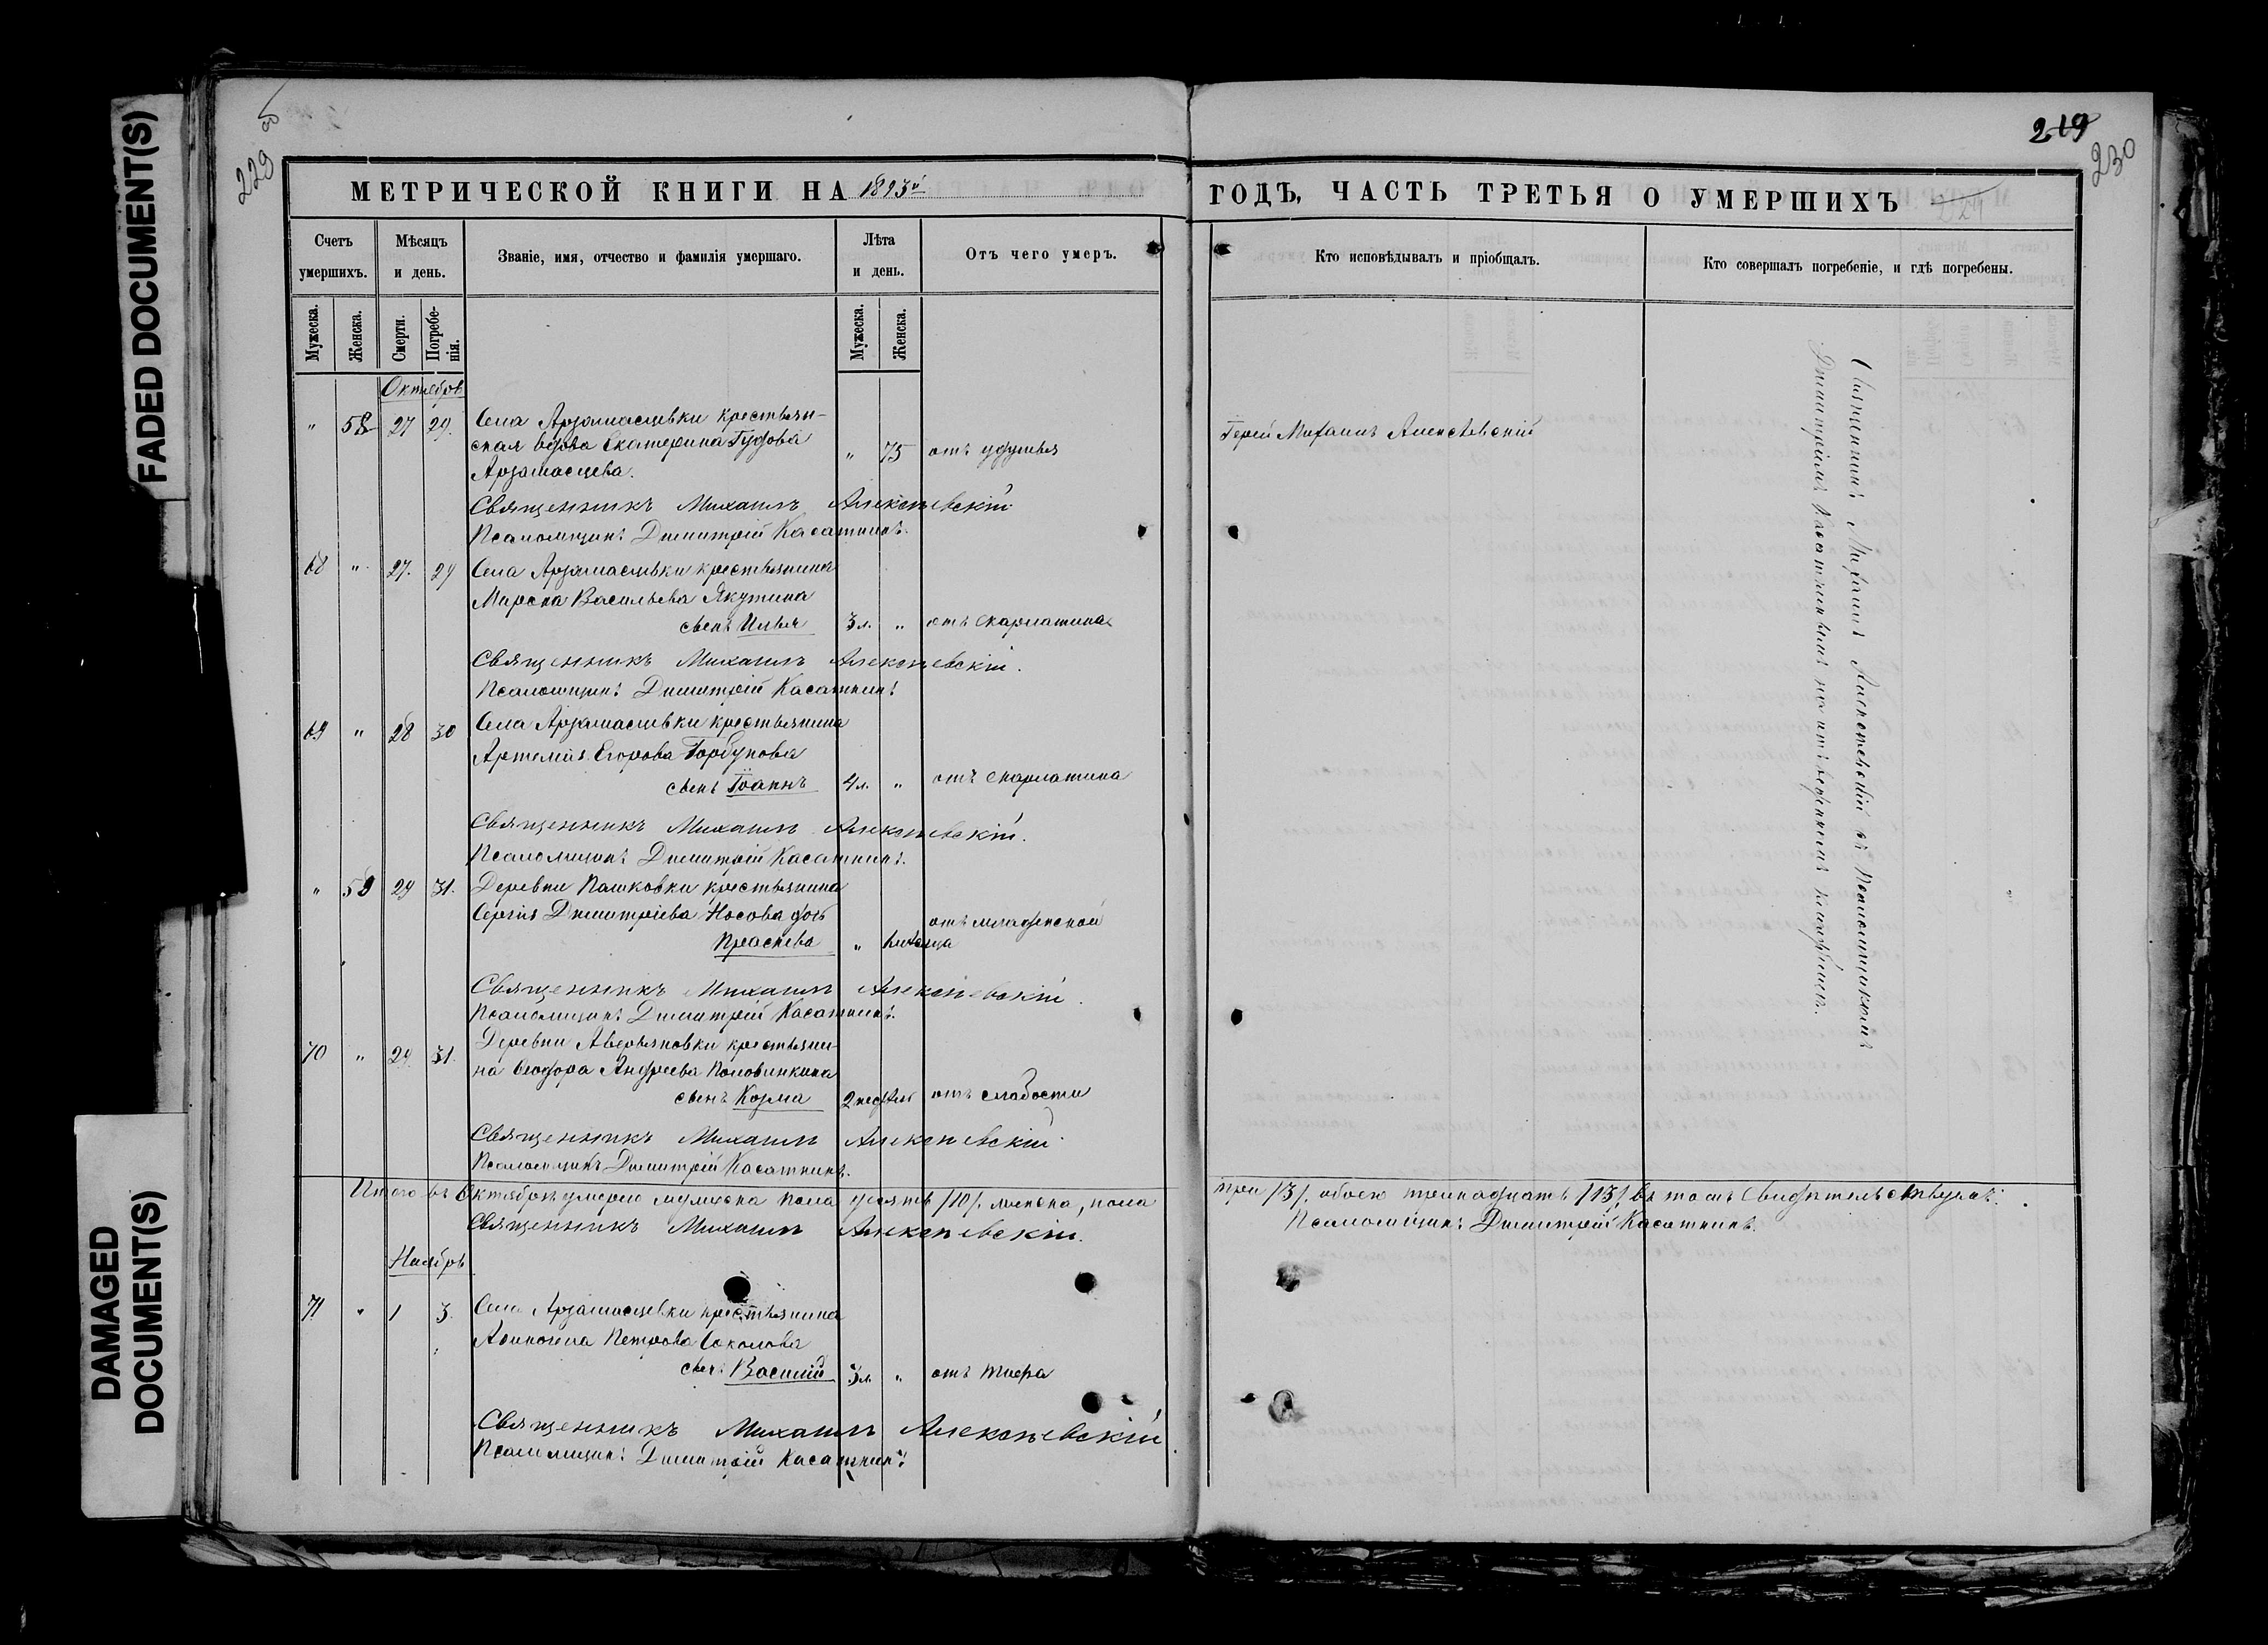 FADED DOCUMENT(S)
DAMAGED
DOCUMENT(S)
229 об
219
230
МЕТРИЧЕСКОЙ КНИГИ НА 1893й
ГОДЪ, ЧАСТЬ ТРЕТЬЯ О УМЕРШИХЪ
Счетъ умершихъ.
Мѣсяцъ и день.
Званіе, имя, отчество и фамилія умершаго.
Лѣта и день.
Отъ чего умеръ.
Кто исповѣдывалъ и пріобщалъ.
Кто совершалъ погребеніе, и гдѣ погребены.
Мужеска.
Женска.
Смерти.
Погребе-
нія.
Мужеска.
Женска.
Октябрь
" 58 27 29. Села Арзамасцевки крестьян-
ская вдова Екатерина Гудова
Арзамасцева. " 75 отъ удушья
Іерей Михаилъ Алексѣевскій
Священникъ Михаилъ Алексѣевскій
Псаломщикъ Димитрій Касаткинъ.
68 " 27. 29 Села Арзамасцевки крестьянина
Марска Васильева Якутина
сынъ Илья 3 л. " отъ скарлатина
Священникъ Михаилъ Алексѣевскій.
Псаломщикъ Димитрій Касаткинъ
69 " 28 30 Села Арзамасцевки крестьянина
Артемія Егорова Горбунова
сынъ Іоаннъ 4 л. " отъ скарлатина
Священникъ Михаилъ Алексѣевскій.
Псаломщикъ Димитрій Касаткинъ.
" 59 29 31. Деревни Пашковки крестьянина
Сергія Димитріева Носова дочь
Праскева " отъ младенской
Священникъ Михаилъ Алексѣевскій.
Псаломщикъ Димитрій Касаткинъ.
70 " 29 31. Деревни Аверьяновки крестьяни-
на Ѳеодора Андреева Половинкина
сынъ Козма 2 недѣль отъ слабости
Священникъ Михаилъ Алексѣевскій
Псаломщикъ Димитрій Касаткинъ.
Итого въ Октябрѣ умерло мужеска пола десять /10/. женска, пола
три /3/. обоего тринадцать /13/, въ томъ свидѣтельствуемъ:
Священникъ Михаилъ Алексѣевскій.
Псаломщикъ Димитрій Касаткинъ.
Ноябрь
71 " 1 3. Села Арзамасцевки крестьянина
Петрова Соколова
сынъ Василій 3 л. " отъ тифа
Священникъ Михаилъ Алексѣевскій.
Псаломщикъ Димитрій Касаткинъ
Священникъ Михаилъ Алексѣевскій съ Псаломщикомъ
Димитріемъ Касаткинымъ на кладбищѣ.